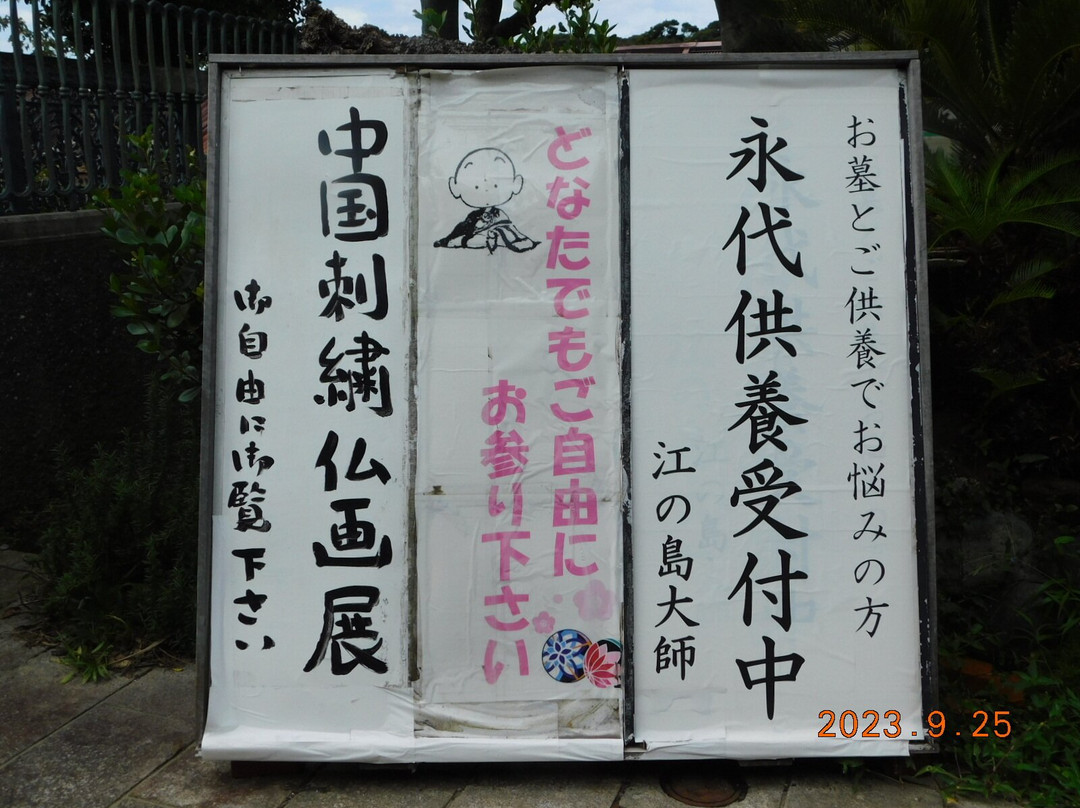 お墓とご供養でお悩みの方
永代供養受付中
江の島大師
どなたでもご自由に
お参り下さい
中国刺繍仏画展
御自由に御覧下さい
2023.9.25